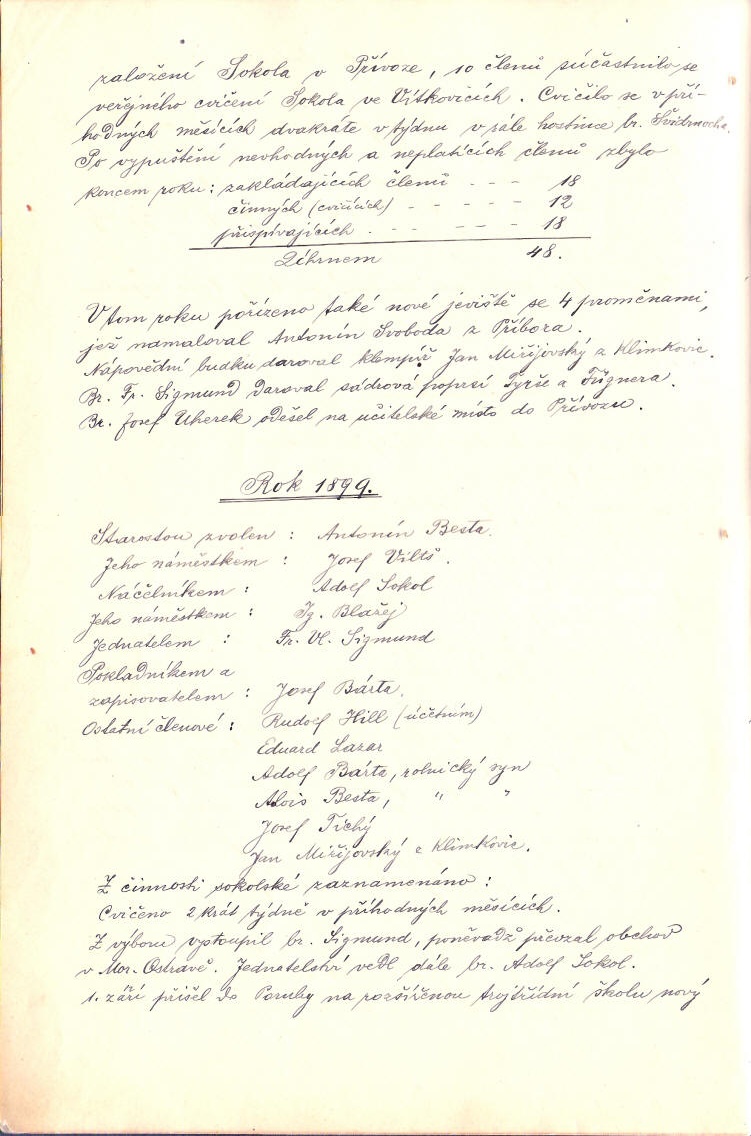 založení Sokola v Přívoze, 10 členů súčastnilo se
veřejného cvičení Sokola ve Vítkovicích. Cvičilo se v pří-
hodných měsících dvakráte v týdnu v sále hostince br. Švidrnocha.
Po vypuštění nevhodných a neplatících členů zbylo
koncem roku: zakládajících členů - - - 18
činných (cvičících) - - - - - 12
přispívajících . - - - - - 18
Úhrnem 48.
V tom roku pořízeno také nové jeviště se 4 proměnami,
jež namaloval Antonín Svoboda z Příbora.
Nápovědní budku daroval klempíř Jan Miřijovský z Klimkovic.
Br. Fr. Sigmund daroval sádrová poprsí Tyrše a Fügnera.
Br. Josef Uherek odešel na učitelské místo do Přívozu.
Rok 1899.
Starostou zvolen : Antonín Besta.
Jeho náměstkem : Josef Viltš.
Náčelníkem : Adolf Sokol
Jeho náměstkem : Ig. Blažej
Jednatelem : Fr. Vl. Sigmund
Pokladníkem a
zapisovatelem : Josef Bárta.
Ostatní členové : Rudolf Hill (účetním)
Eduard Lazar
Adolf Bárta, rolnický syn
Alois Besta, " "
Josef Tichý
Jan Miřijovský z Klimkovic.
Z činnosti sokolské zaznamenáno :
Cvičeno 2 krát týdně v příhodných měsících.
Z výboru vystoupil br. Sigmund, poněvadž převzal obchod
v Mor. Ostravě. Jednatelství vedl dále br. Adolf Sokol.
1. září přišel do Poruby na rozšířenou trojtřídní školu nový